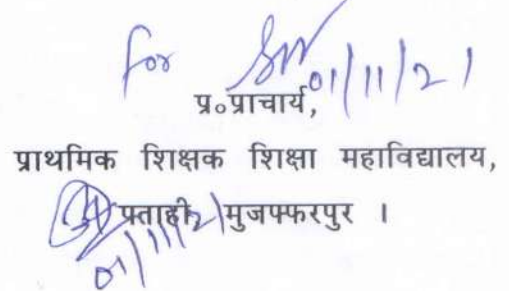 for 01/11/21
प्र०प्राचार्य,
प्राथमिक शिक्षक शिक्षा महाविद्यालय,
पताही, मुजफ्फरपुर ।
01/11/21